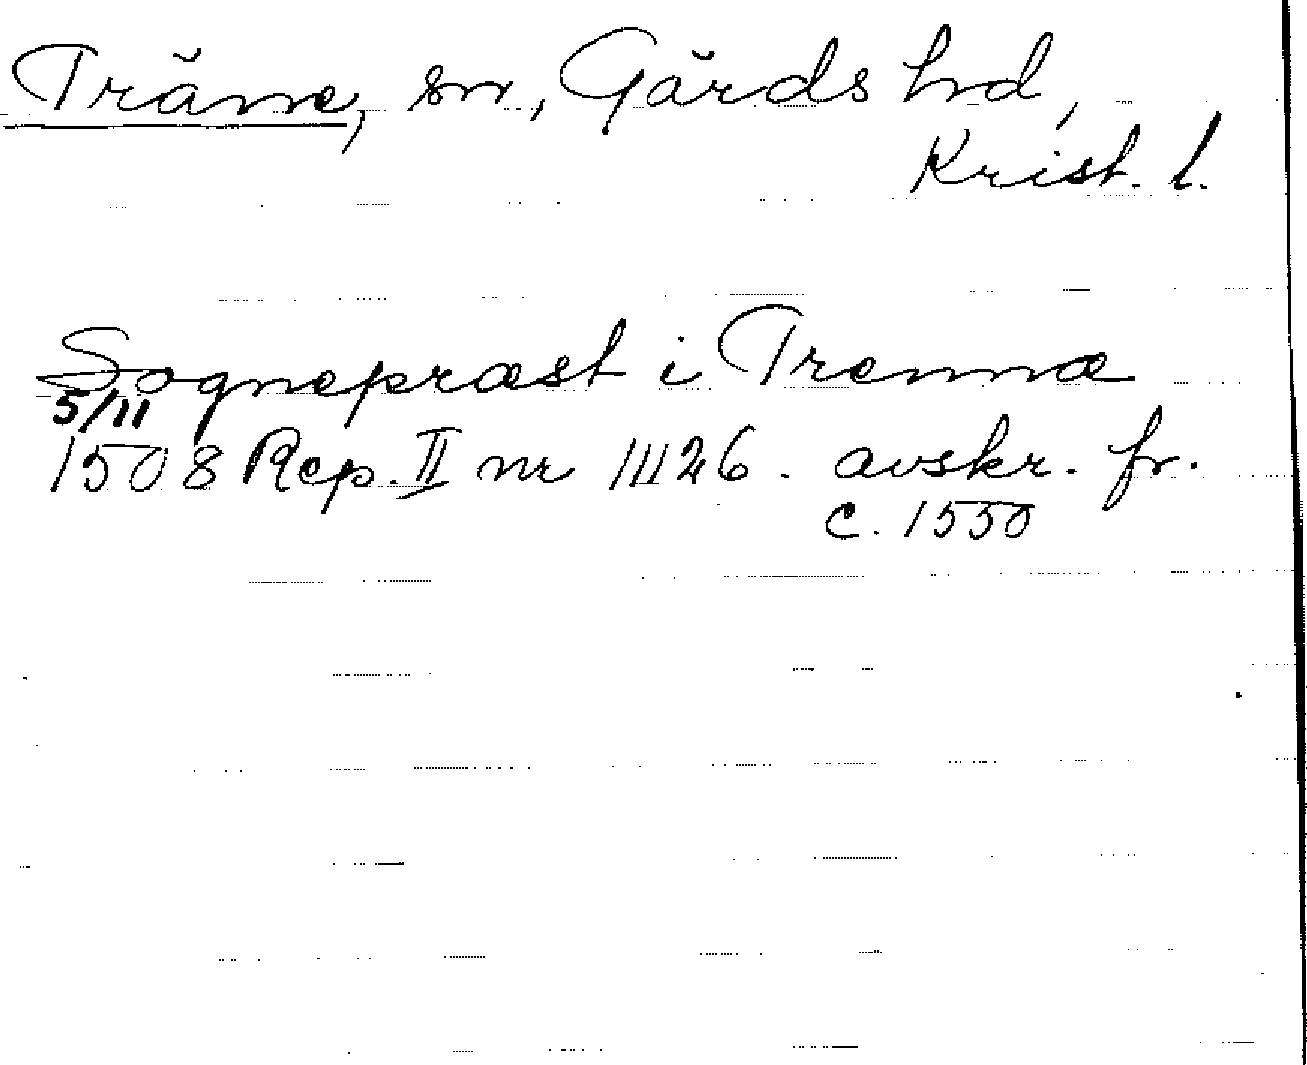 Träne, sn, Gärds hd,
Krist. l.
Sognepræst i Trennæ
5/11
1508 Rep. II nr 11126. avskr. fr.
c. 1550